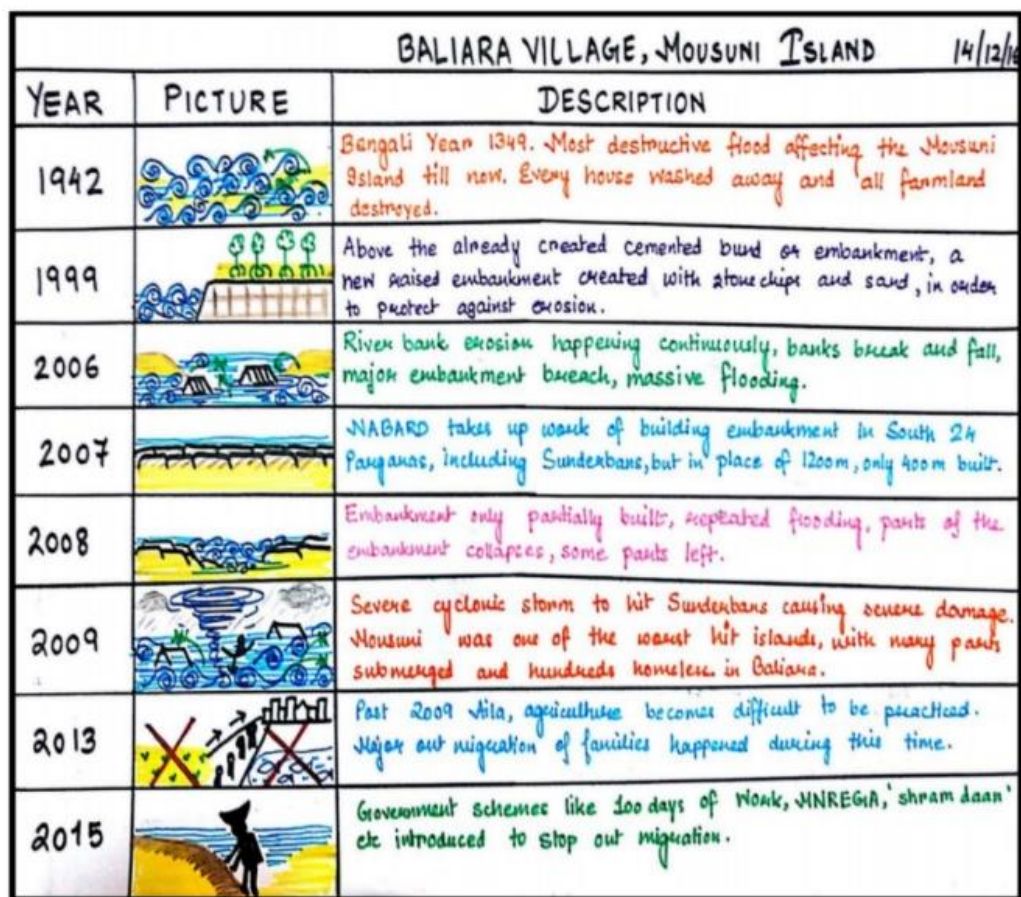 BALIARA VILLAGE, MOUSUNI ISLAND 14/12/1
YEAR PICTURE DESCRIPTION
1942
Bengali Year 1349. Most destructive flood affecting the Mousuni
Island till now. Every house washed away and all farmland
destroyed.
1999
Above the already created cemented bund or embankment, a
new raised embankment created with stone chips and sand, in order
to protect against erosion.
2006
River bank erosion happening continuously, banks break and fall,
major embankment breach, massive flooding.
2007
NABARD takes up work of building embankment in South 24
Parganas, including Sunderbans, but in place of 1200m, only 400m built.
2008
Embankment only partially built, repeated flooding, parts of the
embankment collapses, some parts left.
2009
Severe cyclonic storm to hit Sunderbans causing severe damage.
Mousuni was one of the worst hit islands, with many parts
submerged and hundreds homeless in Baliara.
2013
Post 2009 Aila, agriculture becomes difficult to be practiced.
Major out migration of families happened during this time.
2015
Government schemes like 100 days of Work, MNREGA, 'shram daan'
etc introduced to stop out migration.